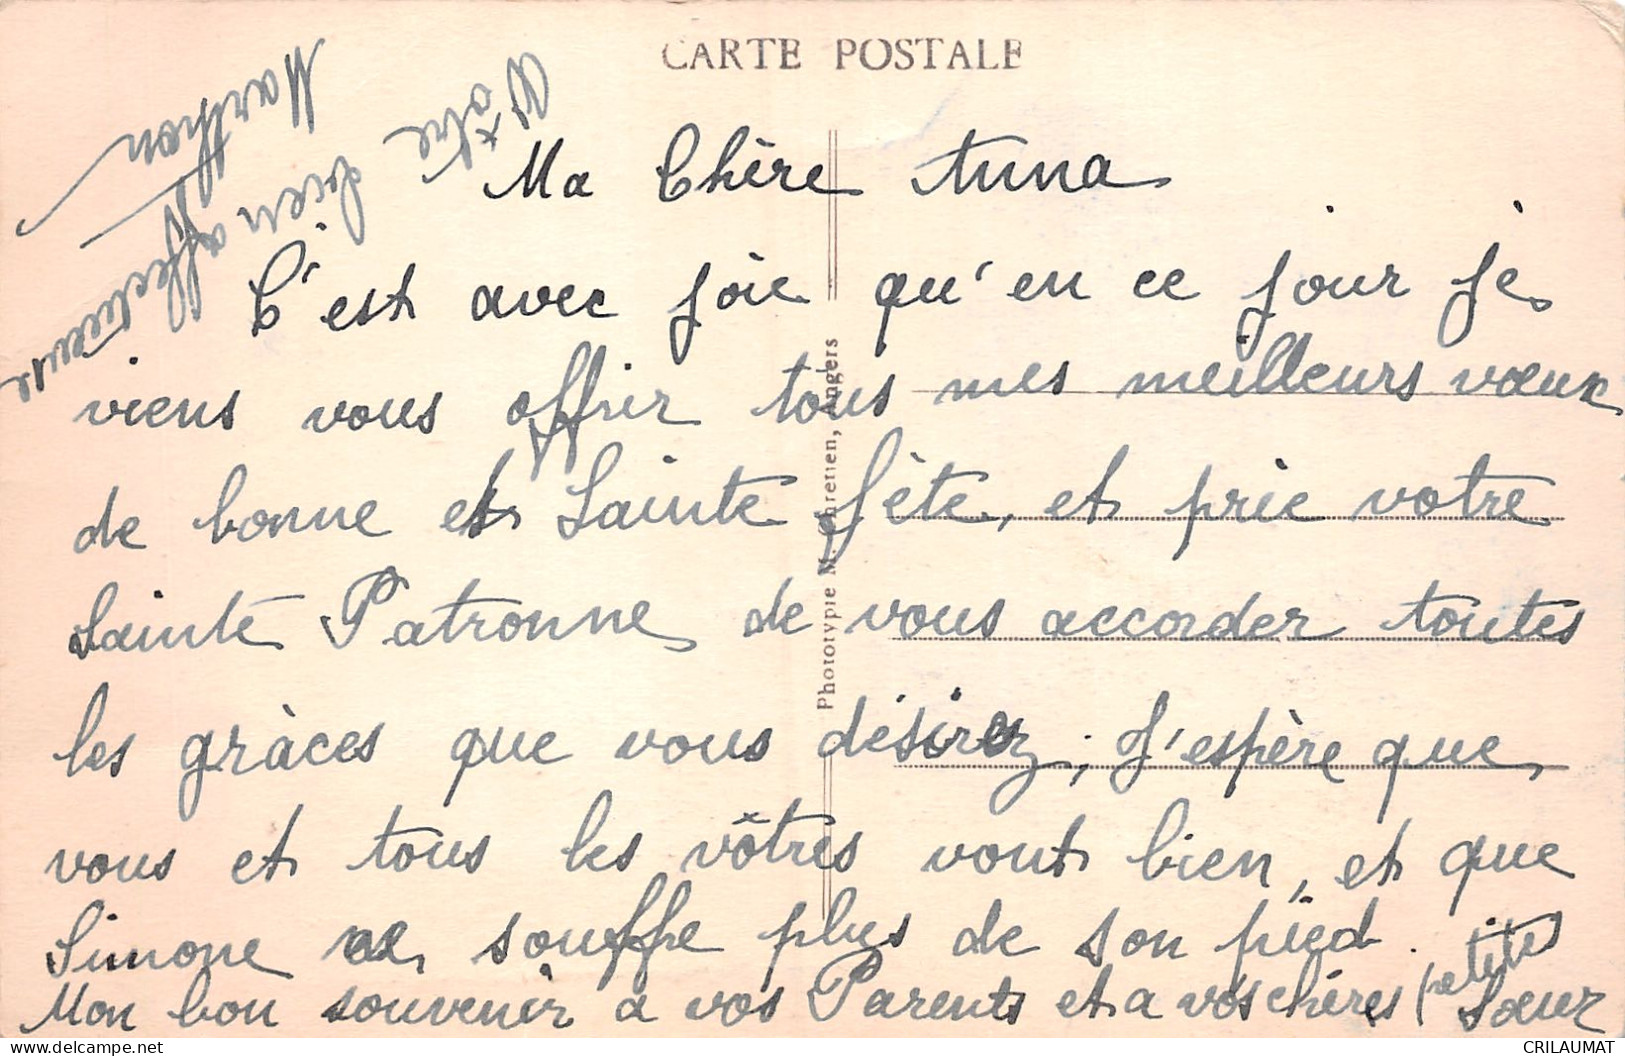 CARTE POSTALE
Ma Chère Anna
C'est avec joie qu'en ce jour je
viens vous offrir tous mes meilleurs vœux
de bonne et Sainte fête, et prie votre
Sainte Patronne de vous accorder toutes
les grâces que vous désirez; J'espère que
vous et tous les vôtres vont bien, et que
Simone ne souffre plus de son pied.
Mon bon souvenir a vos Parents et a vos chères (petites
Sœur
Vôtre
bien affectueuse
Marthon
Phototypie M. Chretien, Angers
CRILAUMAT